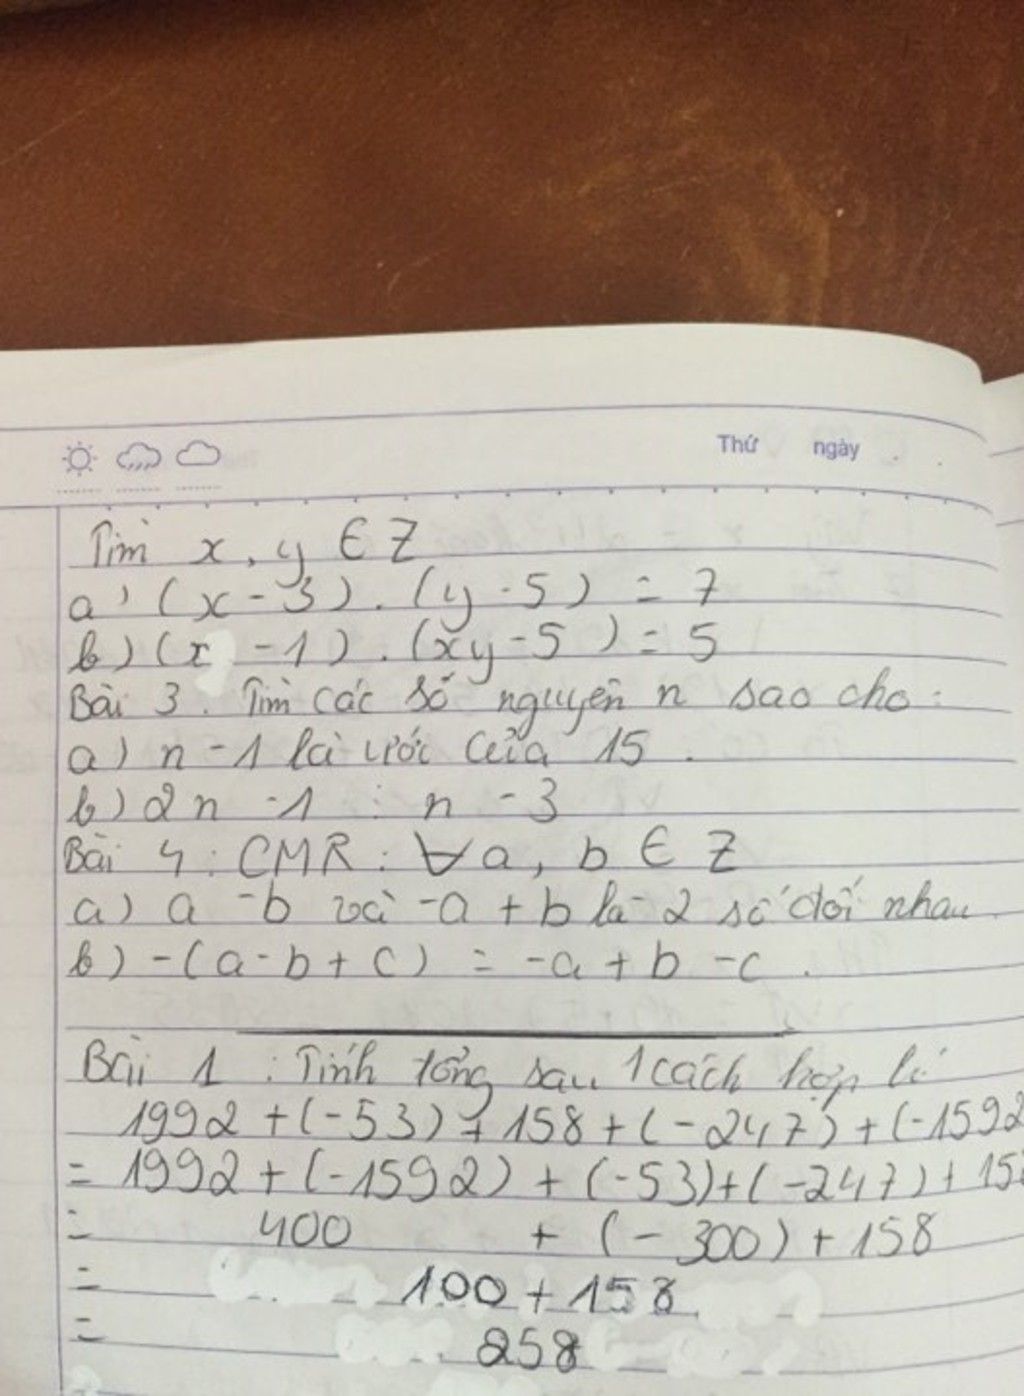 Thứ ngày
Tìm x, y ∈ Z
a) (x - 3) . (y - 5) = 7
b) (x - 1) . (xy - 5) = 5
Bài 3. Tìm các số nguyên n sao cho:
a) n - 1 là ước của 15.
b) 2n - 1 ⋮ n - 3
Bài 4: CMR: ∀a, b ∈ Z
a) a - b và -a + b là 2 số đối nhau.
b) -(a - b + c) = -a + b - c.
Bài 1: Tính tổng sau 1 cách hợp lí
1992 + (-53) + 158 + (-247) + (-1592
= 1992 + (-1592) + (-53) + (-247) + 158
= 400 + (-300) + 158
= 100 + 158
= 258